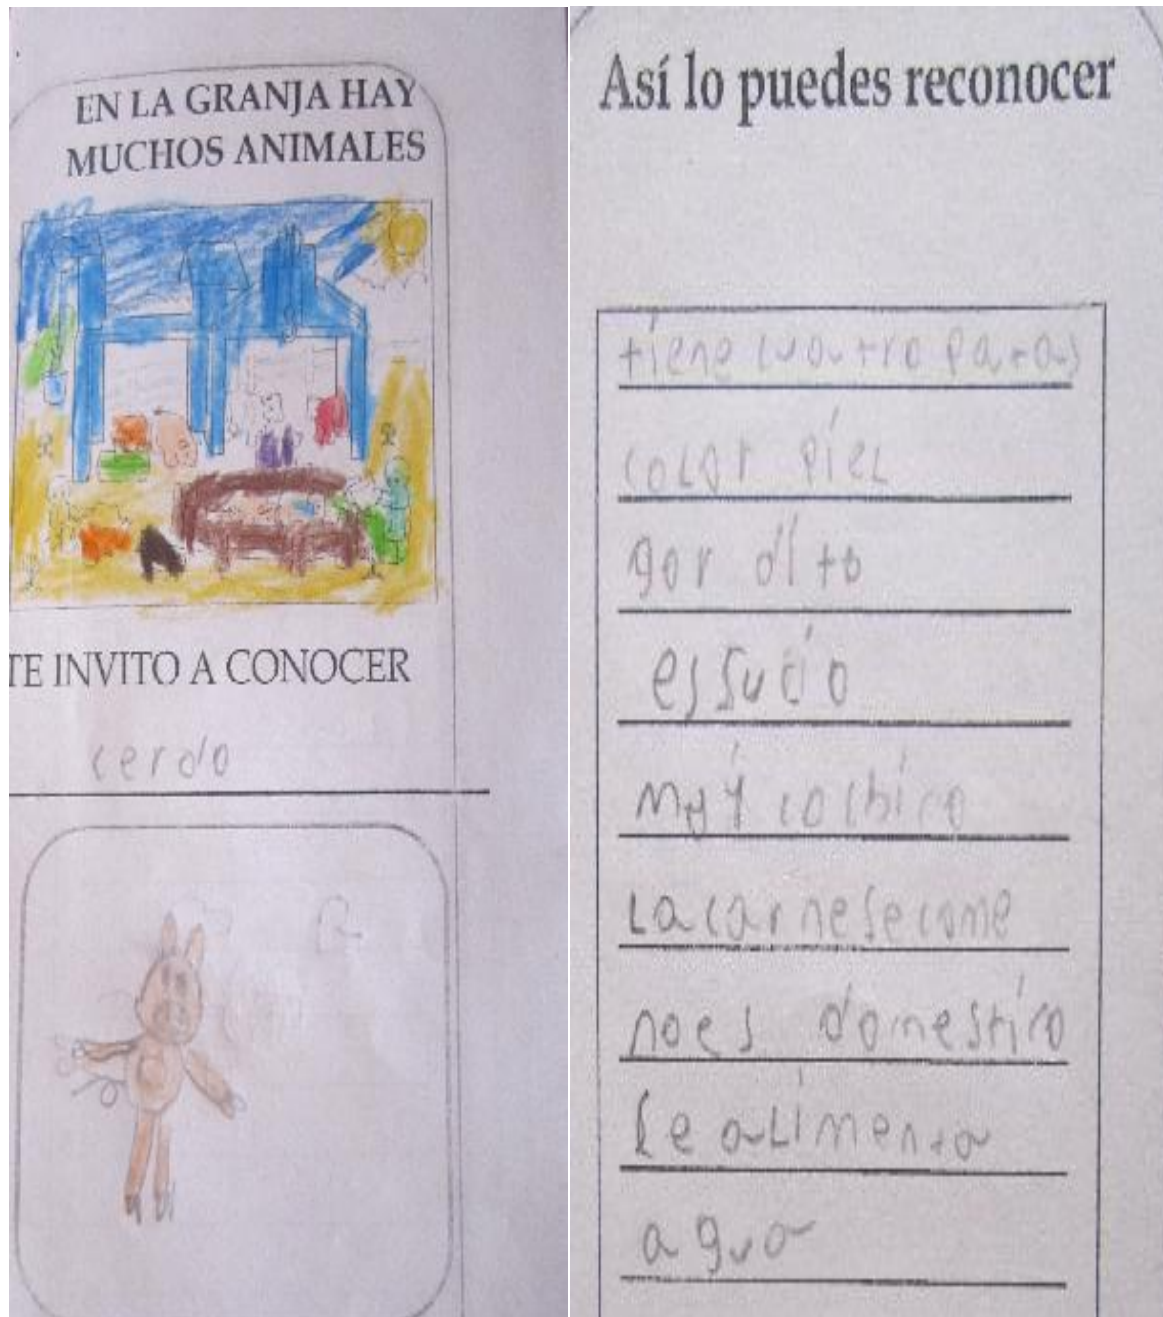 EN LA GRANJA HAY
MUCHOS ANIMALES
TE INVITO A CONOCER
cerdo
Así lo puedes reconocer
tiene cuatro patas
color piel
gor dito
es sucio
muy cochino
La carne se come
no es domestico
se alimenta
agua